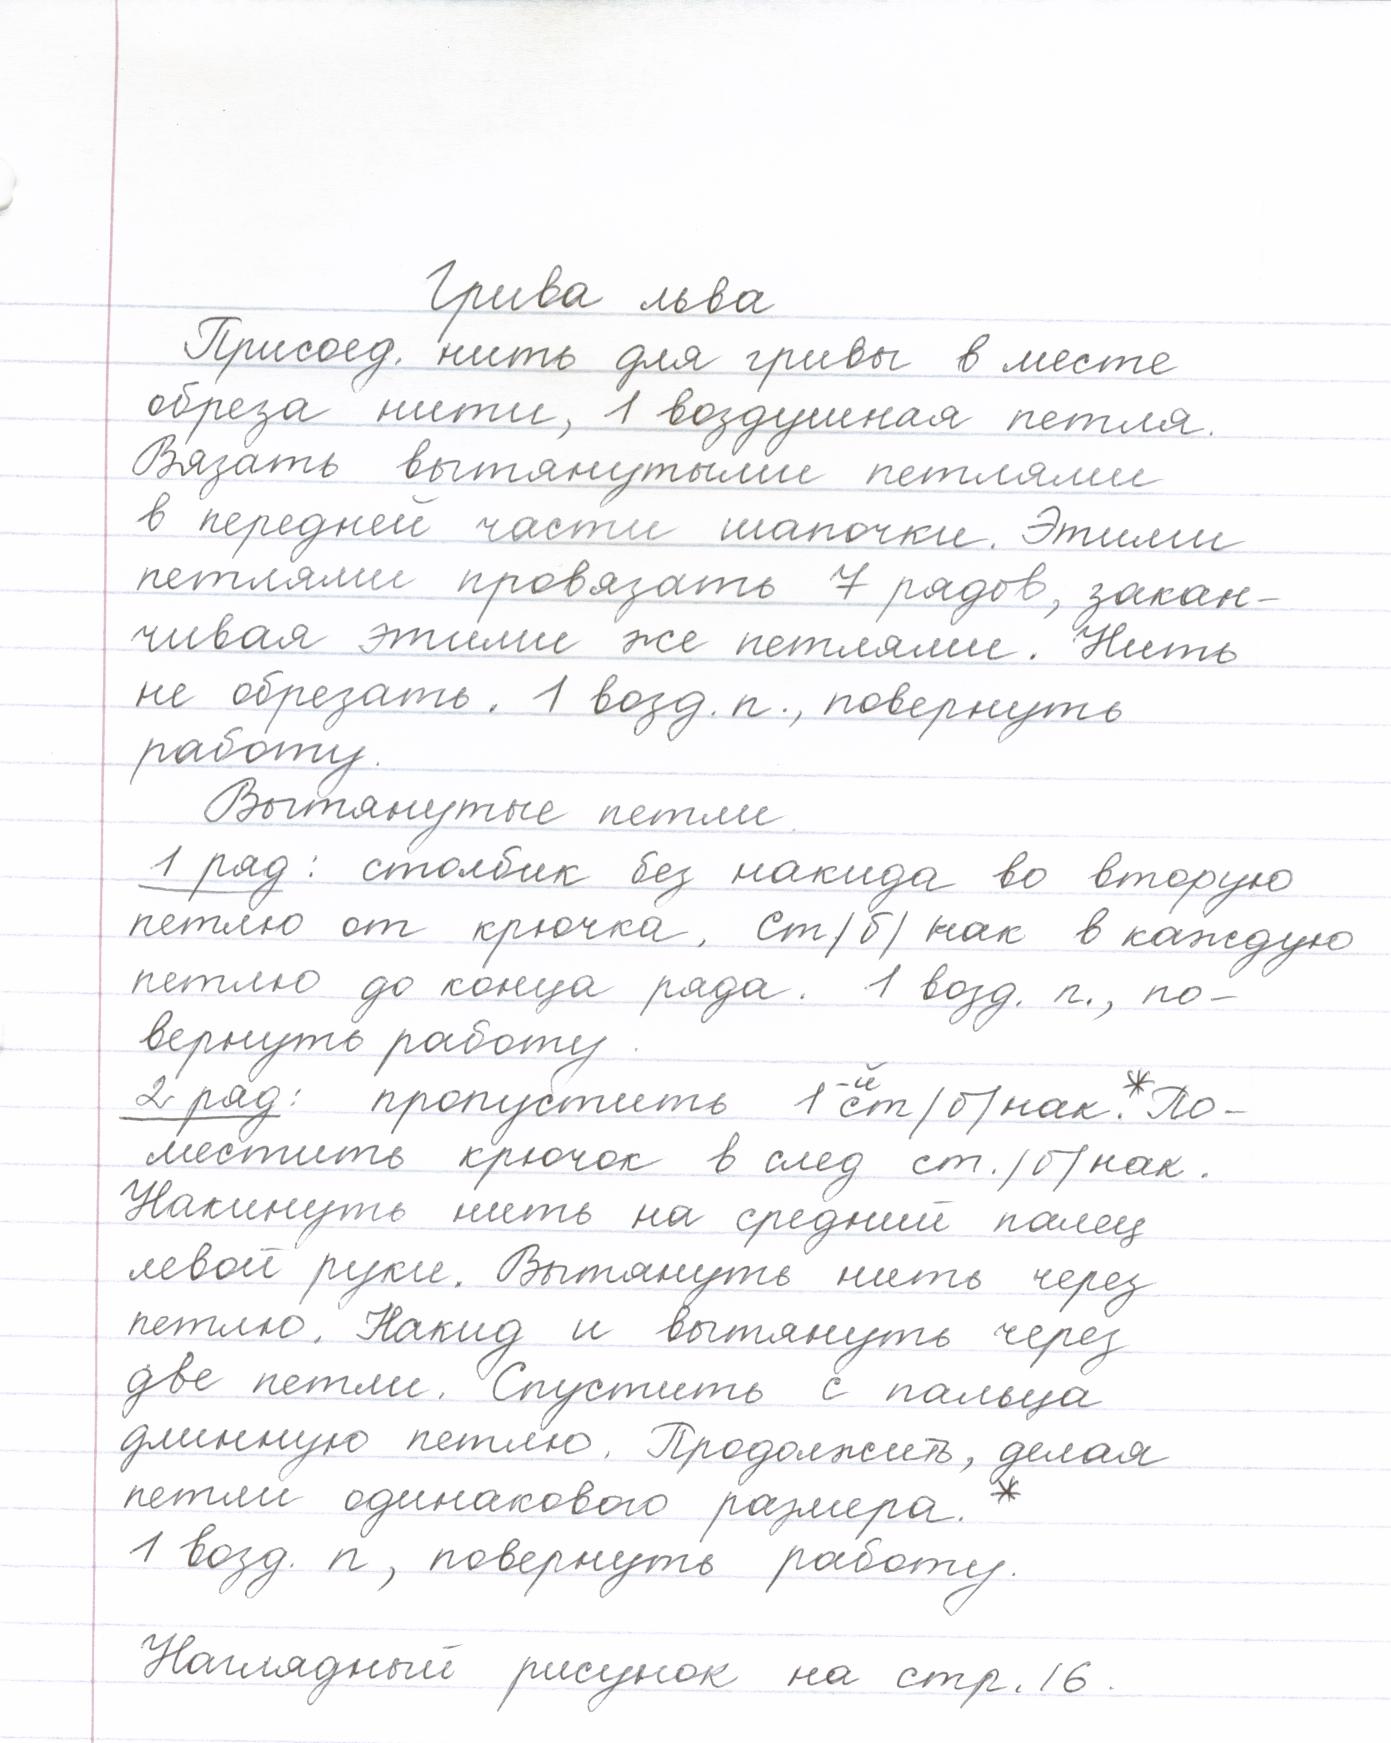 Грива льва
Присоед. нить для гривы в месте
обреза нити, 1 воздушная петля.
Вязать вытянутыми петлями
в передней части шапочки. Этими
петлями провязать 7 рядов, закан-
чивая этими же петлями. Нить
не обрезать. 1 возд. п., повернуть
работу.
Вытянутые петли.
1 ряд: столбик без накида во вторую
петлю от крючка. Ст/б/нак в каждую
петлю до конца ряда. 1 возд. п., по-
вернуть работу.
2 ряд: пропустить 1-й ст/б/нак.* По-
местить крючок в след ст./б/нак.
Накинуть нить на средний палец
левой руки. Вытянуть нить через
петлю. Накид и вытянуть через
две петли. Спустить с пальца
длинную петлю. Продолжить, делая
петли одинакового размера.*
1 возд. п, повернуть работу.
Наглядный рисунок на стр. 16.